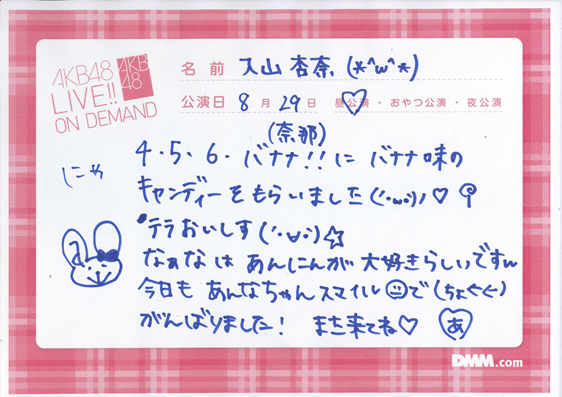 AKB48
LIVE!!
ON DEMAND
AKB
48
名前 入山 杏奈 (*^ω^*)
公演日 8月 29日 昼公演・おやつ公演・夜公演
(奈那)
4・5・6・バナナ!!に バナナ味の
にゃ
キャンディーをもらいました(´・ω・)ノ♡
テラおいしす(´・∀・)☆
なぁなは あんにんが 大好きらしいですw
今日も あんなちゃんスマイル☺で(ちょくく)
がんばりました! また来てね♡ あ
DMM.com